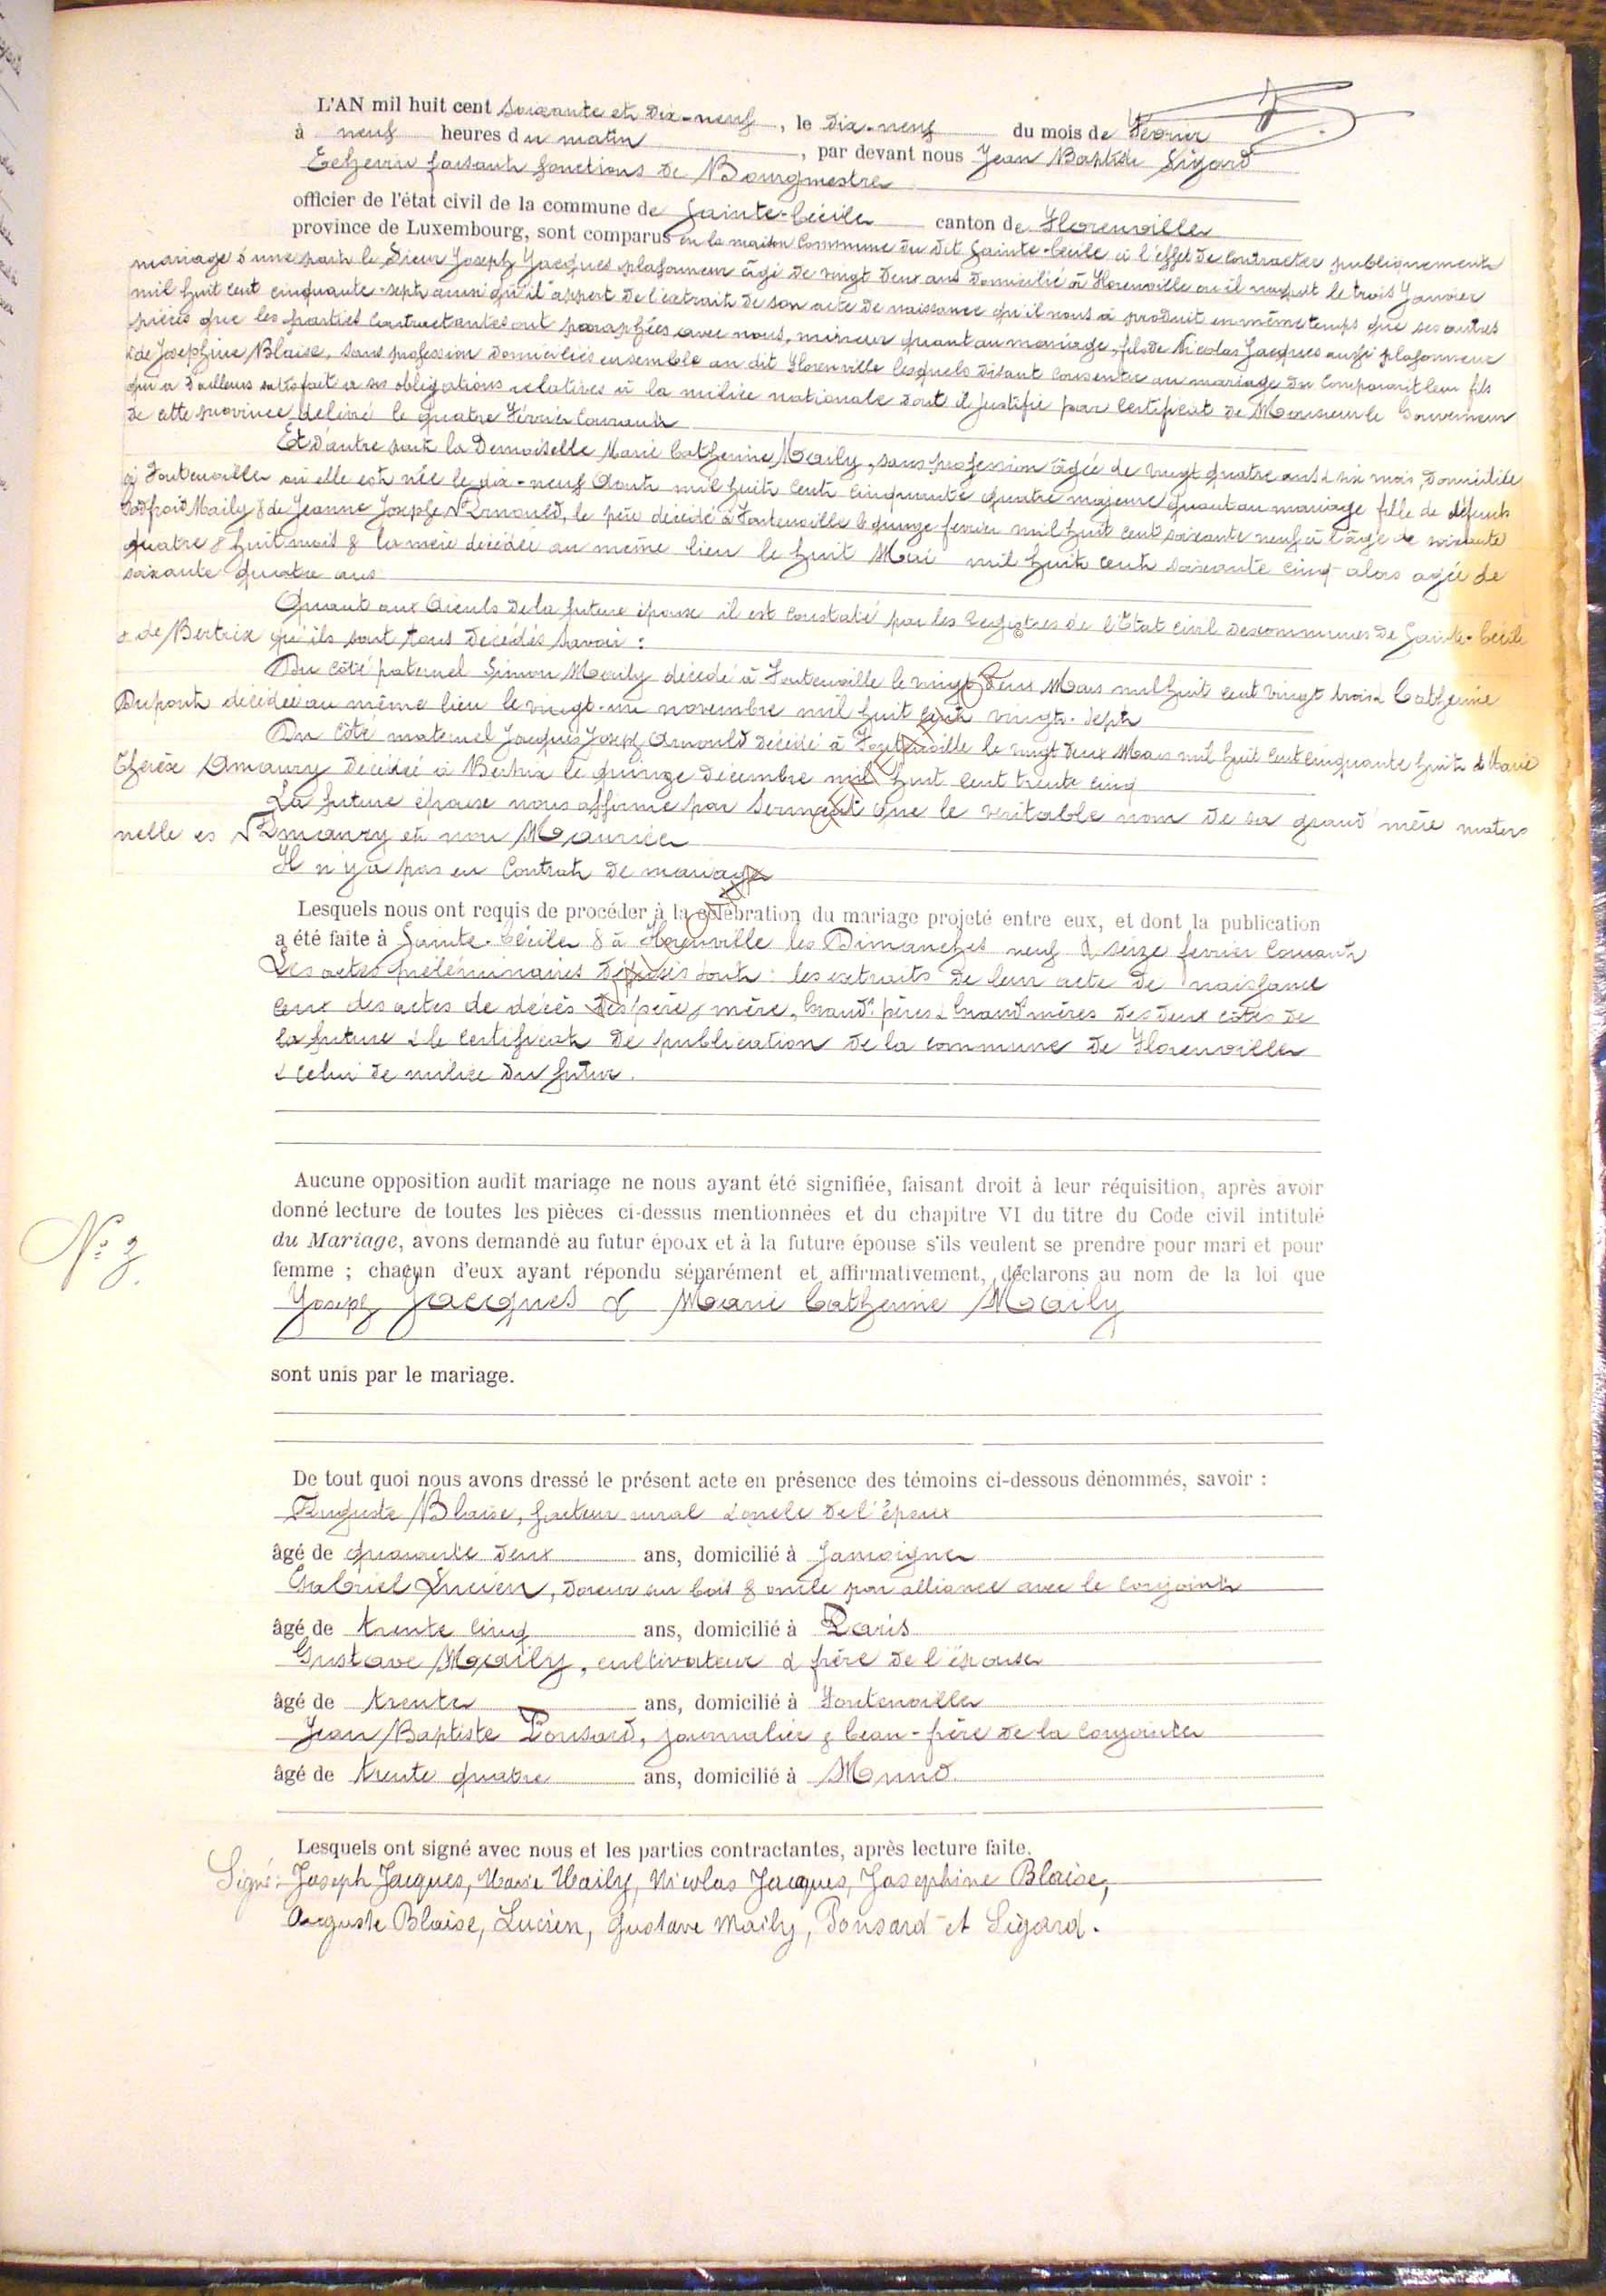 L'AN mil huit cent soixante et dix-neuf, le dix-neuf du mois de Fevrier
à neuf heures du matin, par devant nous Jean Baptiste Sigard
Echevin faisant fonctions de Bourgmestre
officier de l'état civil de la commune de Sainte-Cécile canton de Florenville
province de Luxembourg, sont comparus en la maison Commune du dit Sainte-Cécile à l'effet de contracter publiquement
mariage d'une part le Sieur Joseph Jacques plafonneur âgé de vingt deux ans domicilié à Florenville où il naquit le trois Janvier
mil huit cent cinquante-sept ainsi qu'il appert de l'extrait de son acte de naissance qu'il nous a produit en même temps que ses autres
pièces que les parties Contractantes ont paraphées avec nous, mineur quant au mariage, fils de Nicolas Jacques aussi plafonneur
& de Josephine Blaise, sans profession domiciliés ensemble au dit Florenville lesquels disant consentir au mariage du Comparant leur fils
qui a d'ailleurs satisfait à ses obligations relatives à la milice nationale dont il justifie par Certificat de Monsieur le Gouverneur
de cette province délivré le quatre Février Courant
Et d'autre part la Demoiselle Marie Catherine Maily, sans profession âgée de vingt quatre ans & six mois, Domiciliée
à Fontenoille où elle est née le dix-neuf Août mil huit Cent Cinquante quatre majeure quant au mariage fille de défunts
Godfroid Maily & de Jeanne Joseph Arnould, le père décédé à Fontenoille le quinze fevrier mil huit cent soixante neuf à l'âge de soixante
quatre & huit mois & la mère décédée au même lieu le huit Mai mil huit cent soixante cinq alors agée de
soixante quatre ans
Quant aux Aieuls de la future épouse il est constaté par les Registres de l'Etat civil des communes de Sainte-Cécile
& de Bertrix qu'ils sont tous décédés savoir :
Du côté paternel Simon Maily décédé à Fontenoille le vingt deux Mars mil huit cent vingt trois & Catherine
Dupont décédée au même lieu le vingt-un novembre mil huit cent vingt-sept
Du côté maternel Jacques Joseph Arnould décédé à Fontenoille le vingt deux Mars mil huit cent cinquante huit & Marie
Thérèse Amaury décédée à Bertrix le quinze décembre mil huit cent trente cinq
La future épouse nous affirme par serment que le veritable nom de sa grand'mère mater
nelle es Amaury et non Maurice
Il n'y a pas eu Contrat de mariage
Lesquels nous ont requis de procéder à la célébration du mariage projeté entre eux, et dont la publication
a été faite à Sainte-Cécile & à Florenville les Dimanches neuf & seize fevrier Courant
Les actes préléminaires déposés sont : les extraits de leur acte de naissance
ceux des actes de décès des père, mère, Grand-pères & Grand mères des deux côtés de
la future & le Certificat de publication de la commune de Florenville
& celui de milice du futur.
Aucune opposition audit mariage ne nous ayant été signifiée, faisant droit à leur réquisition, après avoir
donné lecture de toutes les pièces ci-dessus mentionnées et du chapitre VI du titre du Code civil intitulé
du Mariage, avons demandé au futur époux et à la future épouse s'ils veulent se prendre pour mari et pour
N° 3.
femme ; chacun d'eux ayant répondu séparément et affirmativement, déclarons au nom de la loi que
Joseph Jacques & Marie Catherine Maily
sont unis par le mariage.
De tout quoi nous avons dressé le présent acte en présence des témoins ci-dessous dénommés, savoir :
Auguste Blaise, facteur rural & oncle de l'époux
âgé de quarante deux ans, domicilié à Jamoigne
Gabriel Lucien, doreur en bois & oncle par alliance avec le conjoint
âgé de trente cinq ans, domicilié à Paris
Gustave Maily, cultivateur & frère de l'épouse
âgé de trente ans, domicilié à Fontenoille
Jean Baptiste Ponsard, journalier & beau-frère de la conjointe
âgé de trente quatre ans, domicilié à Muno
Lesquels ont signé avec nous et les parties contractantes, après lecture faite.
Signé: Joseph Jacques, Marie Maily, Nicolas Jacques, Josephine Blaise,
Auguste Blaise, Lucien, Gustave Maily, Ponsard et Sigard.